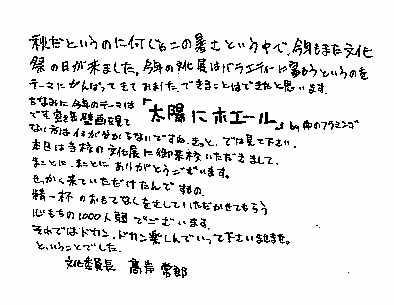 秋だというのに何でしょこの暑さという中で、今年もまた文化
祭の日が来ました。今年の文化展はバラエティーに富もうというのを
テーマにがんばってきておりまして、できることはできたと思います。
ちなみに今年のテーマは
「太陽にホエール」by 南のフラミンゴ
です。実を言えば壁画を見て
ない方は何が分からないですね。きっと。では見て下さい。
本日は当校の文化展に御来校いただきまして、
まことに、まことにありがとうございます。
せっかく来ていただけたんですもの、
精一杯のおもてなしをさせていただかせてもらう
心もちの1000人題でございます。
それではドカン、ドカン楽しんでいって下さいませませ。
と、いうことでした。
文化委員長 高岸 常郎